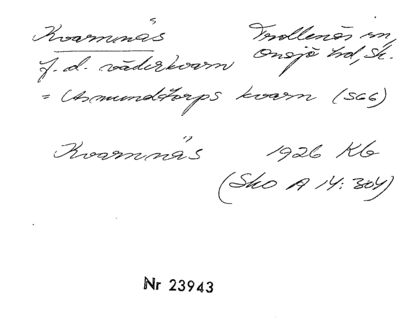 Kvarnnäs Trollenäs sn,
f.d. väderkvarn Onsjö hd, Sk.
= Asmundtorps kvarn (S66)
Kvarnnäs 1926 Kb
(Sko A 14:304)
Nr 23943